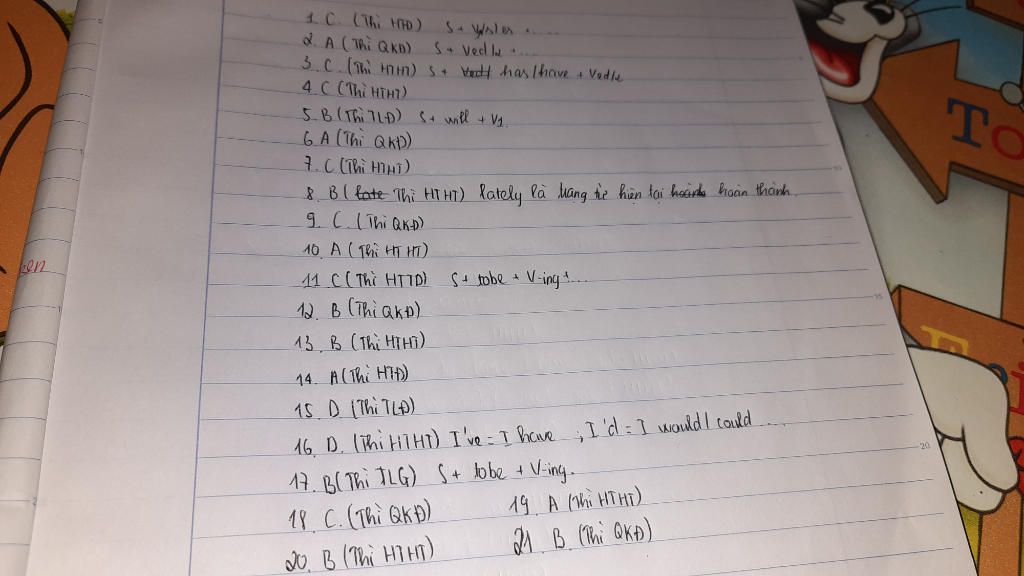 1. C. (Thì HTĐ) S + Vs/es + ....
2. A (Thì QKĐ) S + Ved/c + ...
3. C. (Thì HTHT) S + has/have + Ved/c
4. C (Thì HTHT)
5. B (Thì TLĐ) S + will + V1
6. A (Thì QKĐ)
7. C (Thì HTHT)
8. B ( Thì HTHT) lately là trạng từ hiện tại hoàn thành.
9. C. (Thì QKĐ)
10. A (Thì HTHT)
en
11. C (Thì HTTD) S + tobe + V-ing + ...
12. B (Thì QKĐ)
13. B (Thì HTHT)
14. A (Thì HTĐ)
15. D (Thì TLĐ)
16. D. (Thì HTHT) I've = I have ; I'd = I would / could ....
17. B (Thì TLG) S + tobe + V-ing.
18 C. (Thì QKĐ) 19. A (Thì HTHT)
20. B (Thì HTHT) 21. B. (Thì QKĐ)
10
15
20
To